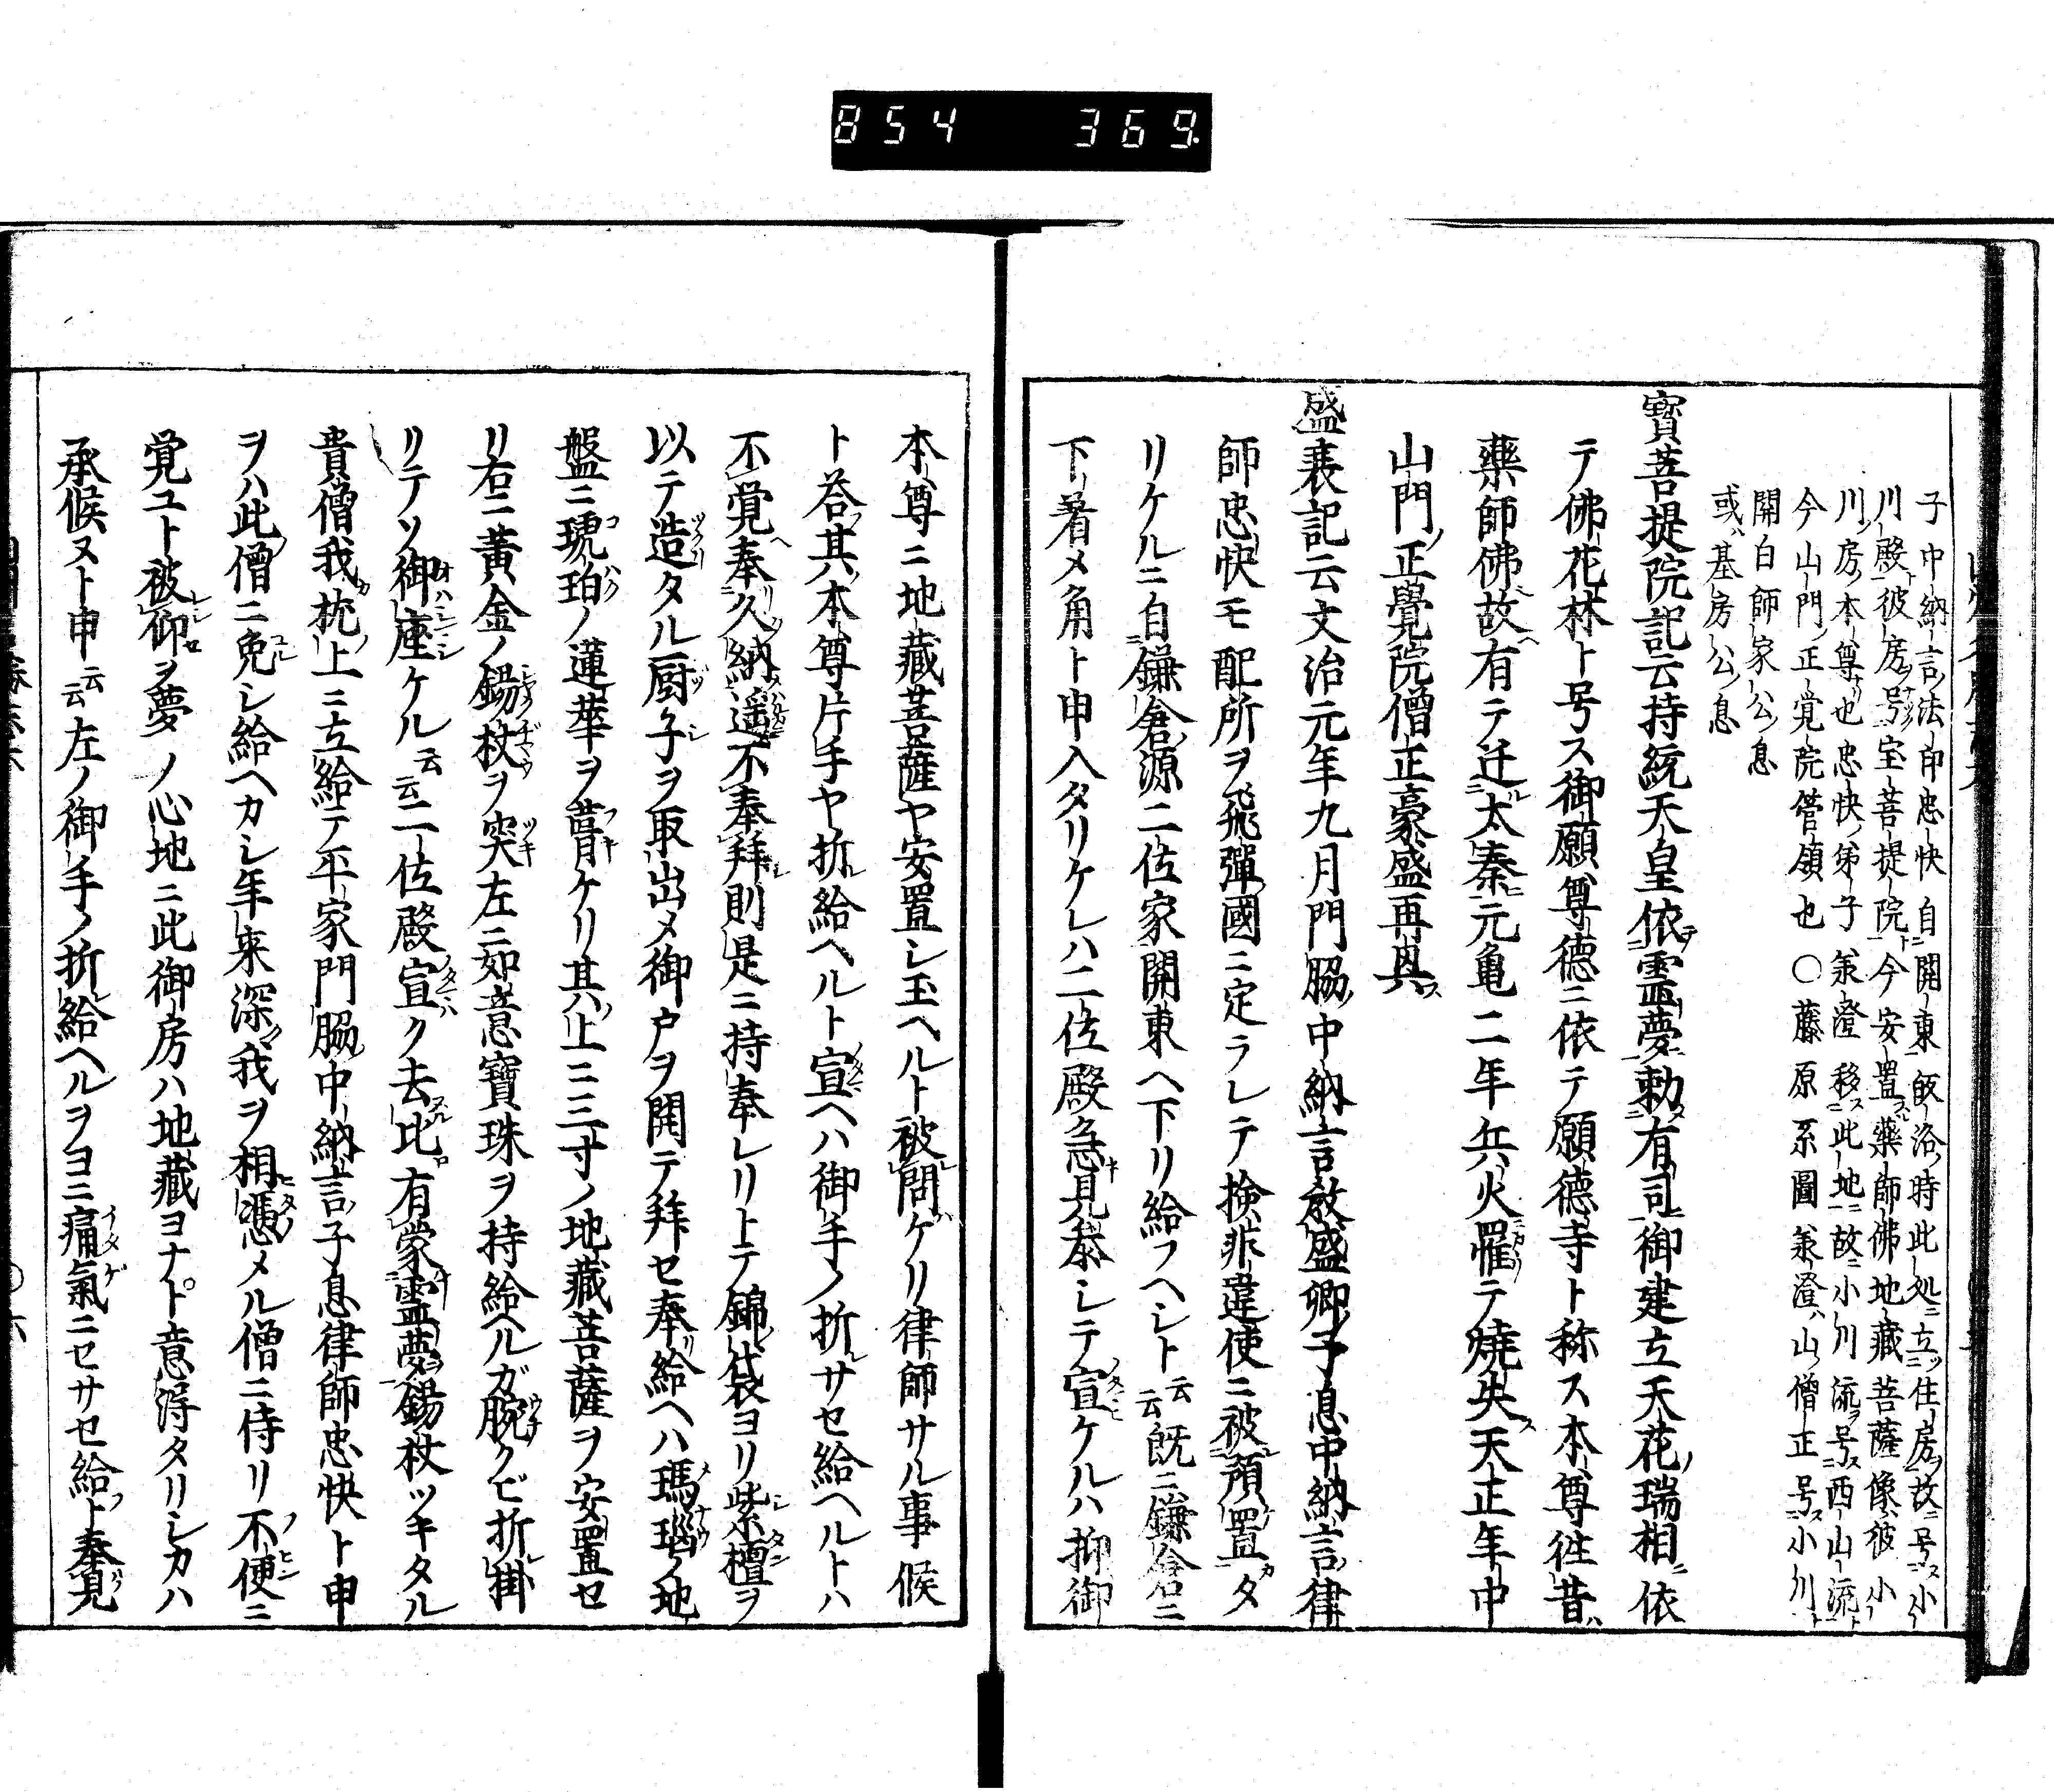 854 369.
子中納言法印忠快自関東皈洛時此処立住房故号小
川殿彼房号宝菩提院今安置薬師佛地藏菩薩像彼小
川房本尊也忠快弟子兼澄移此地故小川流号西山流
今山門正覚院管領也〇藤原系圖兼澄山僧正号小川
関白師家公息
或基房公息
寶菩提院記云持統天皇依霊夢勅有司御建立天花瑞相依
テ佛花林ト号ス御願尊徳ニ依テ願德寺ト称ス本尊徃昔ハ
藥師佛故有テ迁太秦元亀二年兵火罹テ焼失天正年中
山門正覺院僧正豪盛再興
盛衰記云文治元年九月門脇中納言敎盛卿子息中納言律
師忠快モ配所ヲ飛彈國ニ定ラレテ撿非違使ニ被預置タ
リケルニ自鎌倉源二位家関東ヘ下リ給フヘシト云云既ニ鎌倉ニ
下着メ角ト申入タリケレハ二位殿急見泰シテ宣ケルハ抑御
本尊ニ地藏菩薩ヤ安置シ玉ヘルト被問ケリ律師サル事候
ト荅其本尊片手ヤ折給ヘルト宣ヘハ御手ノ折サセ給ヘルトハ
不覚奉久納遥不奉拜則是ニ持奉レリトテ錦袋ヨリ紫檀ヲ
以テ造タル厨子ヲ取出メ御戸ヲ開テ拜セ奉給ヘハ瑪瑙ノ地
盤ニ琥珀ノ蓮華ヲ葺ケリ其上ニ三寸ノ地藏菩薩ヲ安置セ
リ右ニ黄金ノ錫杖ヲ突左ニ如意寶珠ヲ持給ヘルガ腕クビ折掛
リテソ御座ケル云云二位殿宣ク去比有蒙霊夢錫杖ツキタル
貴僧我枕上ニ立給テ平家門脇中納言子息律師忠快ト申
ヲハ此僧ニ免シ給ヘカシ年来深我ヲ相憑メル僧ニ侍リ不便ニ
覚ユト被仰ヲ夢ノ心地ニ此御房ハ地藏ヨナト意得タリシカハ
承候ヌト申云云左ノ御手ノ折給ヘルヲヨニ痛氣ニセサセ給ト奉見